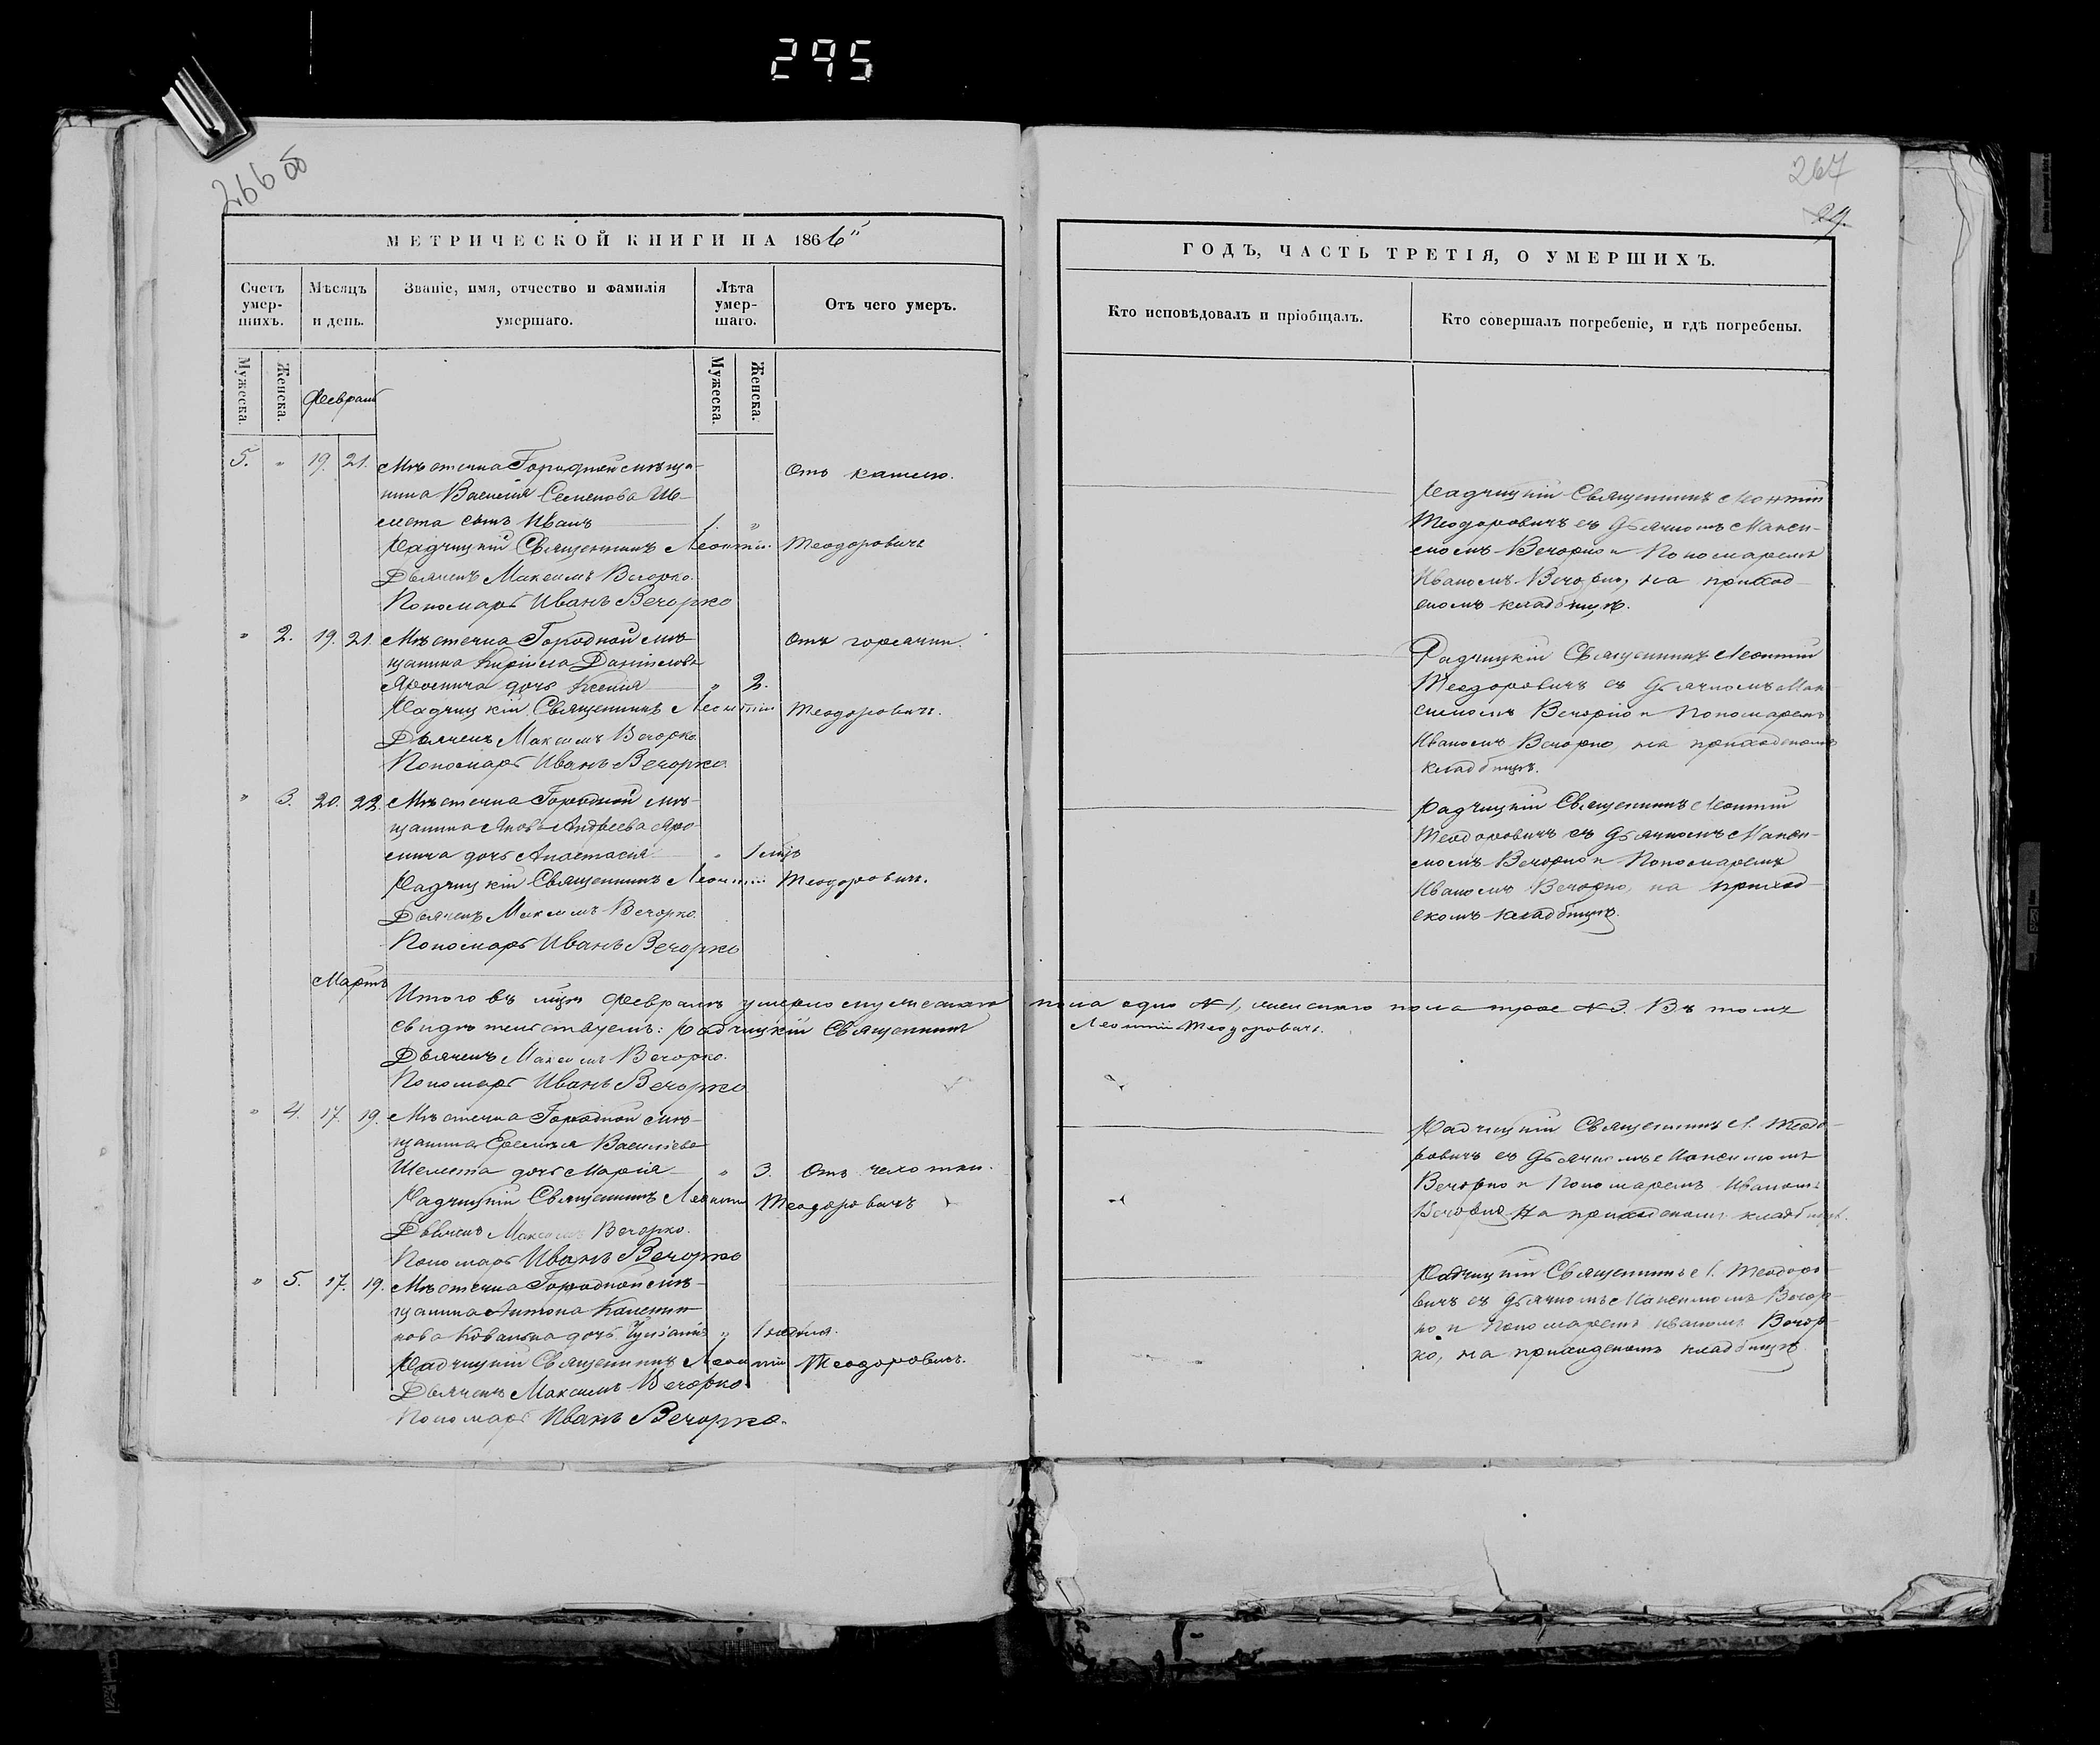 295
266 об
267
29.
МЕТРИЧЕСКОЙ КНИГИ НА 1866
ГОДЪ, ЧАСТЬ ТРЕТІЯ, О УМЕРШИХЪ.
Счетъ умер-шихъ.
Мѣсяцъ и день.
Званіе, имя, отчество и фамилія умершаго.
Лѣта умер-шаго.
Отъ чего умеръ.
Кто исповѣдовалъ и пріобщалъ.
Кто совершалъ погребеніе, и гдѣ погребены.
Мужеска.
Женска.
Февраль
Мужеска.
Женска.
5. " 19. 21. Мѣстечка Городной мѣща-
нина Василія Семенова Ше-
мета сынъ Иванъ 1. "
Отъ кашлю.
Радчицкій Священникъ Леонтій Теодоровичъ
Дьячекъ Максимъ Вечорко.
Пономарь Иванъ Вечорко
Радчицкій Священникъ Леонтій
Теодоровичъ съ дьячкомъ Макси-
момъ Вечорко и Пономаремъ
Иваномъ Вечорко, на приход-
скомъ кладбищѣ.
" 2. 19. 21. Мѣстечка Городной мѣ-
щанина Кирилла Данилова
дочь Ксенія " 2.
Отъ горячки.
Радчицкій Священникъ Леонтій Теодоровичъ.
Дьячекъ Максимъ Вечорко.
Пономарь Иванъ Вечорко.
Радчицкій Священникъ Леонтій
Теодоровичъ съ дьячкомъ Мак-
симомъ Вечорко и Пономаремъ
Иваномъ Вечорко, на приходскомъ
кладбищѣ.
" 3. 20. 22. Мѣстечка Городной мѣ-
щанина Якова Андреева Яро-
шича дочь Анастасія " 1
Радчицкій Священникъ Леонтій Теодоровичъ.
Дьячекъ Максимъ Вечорко.
Пономарь Иванъ Вечорко
Радчицкій Священникъ Леонтій
Теодоровичъ съ дьячкомъ Макси-
момъ Вечорко и Пономаремъ
Иваномъ Вечорко, на приход-
скомъ кладбищѣ.
Мартъ
Итого въ мцѣ Февралѣ умерло мужескаго пола одно № 1, женскаго пола трое № 3. Въ томъ
свидѣтельствуемъ: Радчицкій Священникъ Леонтій Теодоровичъ.
Дьячекъ Максимъ Вечорко.
Пономарь Иванъ Вечорко
" 4. 17. 19. Мѣстечка Городной мѣ-
щанина Василіева
Шемета дочь Марія " 3. Отъ чахотки.
Радчицкій Священникъ Леонтій Теодоровичъ
Дьячекъ Максимъ Вечорко.
Пономарь Иванъ Вечорко
Радчицкій Священникъ Л. Теодо-
ровичъ съ дьячкомъ Максимомъ
Вечорко и Пономаремъ Иваномъ
Вечорко на приходскомъ кладбищѣ.
" 5. 17. 19. Мѣстечка Городной мѣ-
щанина Антона
дочь " 1 недѣля.
Радчицкій Священникъ Леонтій Теодоровичъ.
Дьячекъ Максимъ Вечорко.
Пономарь Иванъ Вечорко.
Радчицкій Священникъ Л. Теодоро-
вичъ съ дьячкомъ Максимомъ Вечор-
ко и Пономаремъ Иваномъ Вечор-
ко, на приходскомъ кладбищѣ